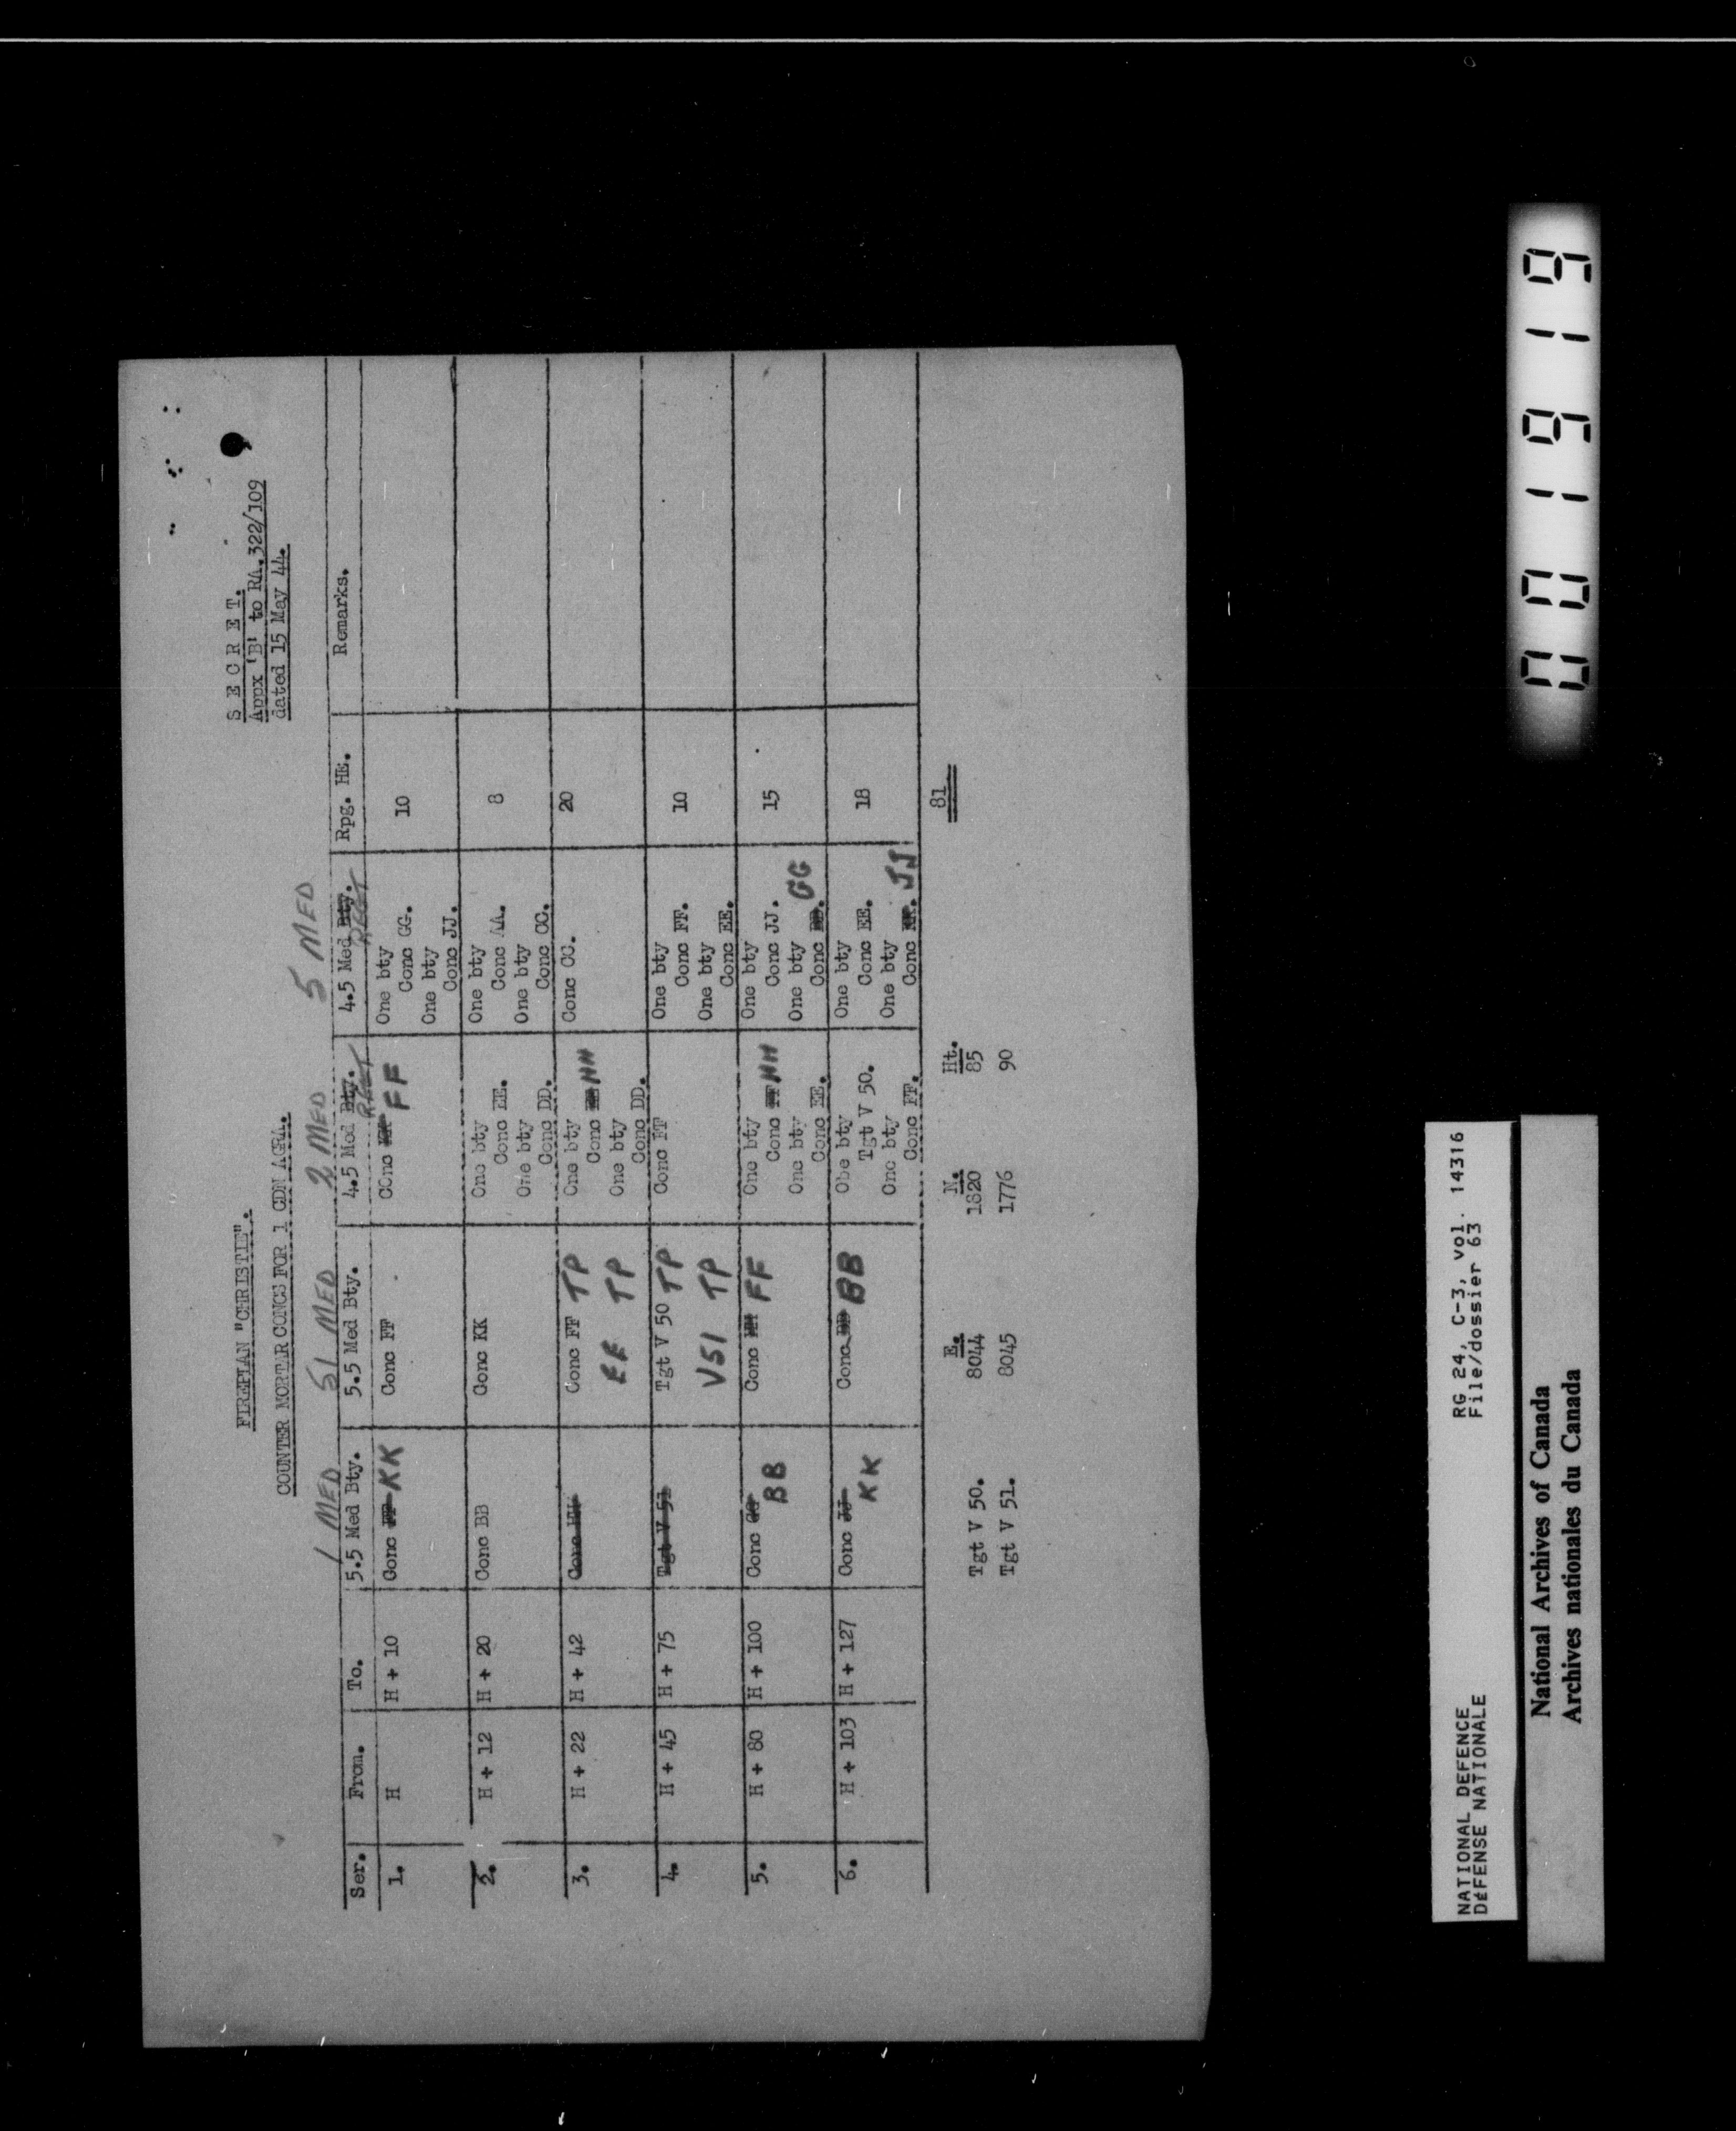 S E C R E T.
Appx 'B' to RA.322/109
dated 15 May 44.
FIREPLAN "CHRISTIE".
COUNTER MORTAR CONCS FOR 1 CDN AGRA.
1 MED 51 MED 2 MED 5 MED
Ser. From. To. 5.5 Med Bty. 5.5 Med Bty. 4.5 Med Bty. REGT 4.5 Med Bty. REGT Rpg. HE. Remarks.
1. H H + 10 Conc FF KK Conc FF Conc FF One bty 10
Conc GG.
One bty
Conc JJ.
2. H + 12 H + 20 Conc BB Conc KK One bty One bty 8
Conc EE. Conc AA.
One bty One bty
Conc DD. Conc CC.
3. H + 22 H + 42 Conc Conc FF TP One bty Conc CC. 20
EE TP Conc HH
One bty
Conc DD.
4. H + 45 H + 75 Tgt V 51 Tgt V 50 TP Conc FF One bty 10
V51 TP Conc FF.
One bty
Conc EE.
5. H + 80 H + 100 Conc GG BB Conc FF One bty One bty 15
Conc FF HH Conc JJ.
One bty One bty
Conc EE. Conc GG
6. H + 103 H + 127 Conc JJ KK Conc BB Obe bty One bty 18
Tgt V 50. Conc EE.
One bty One bty
Conc FF. Conc JJ
81
E. N. Ht.
Tgt V 50. 8044 1820 85
Tgt V 51. 8045 1776 90
NATIONAL DEFENCE RG 24, C-3, vol. 14316
DéFENSE NATIONALE File/dossier 63
National Archives of Canada
Archives nationales du Canada
001919